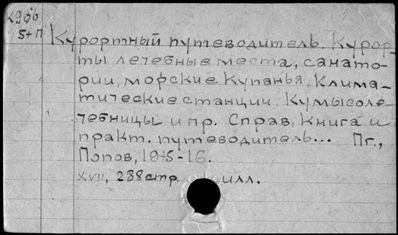 2966
5+П
Курортный путеводитель. Курор-
ты лечебные места, санато-
рии, морские купанья, клима-
тические станции. Кумысоле-
чебницы и пр. Справ. Книга и
практ. путеводитель... Пг.,
Попов, 1915-16.
XVII, 288 стр. илл.